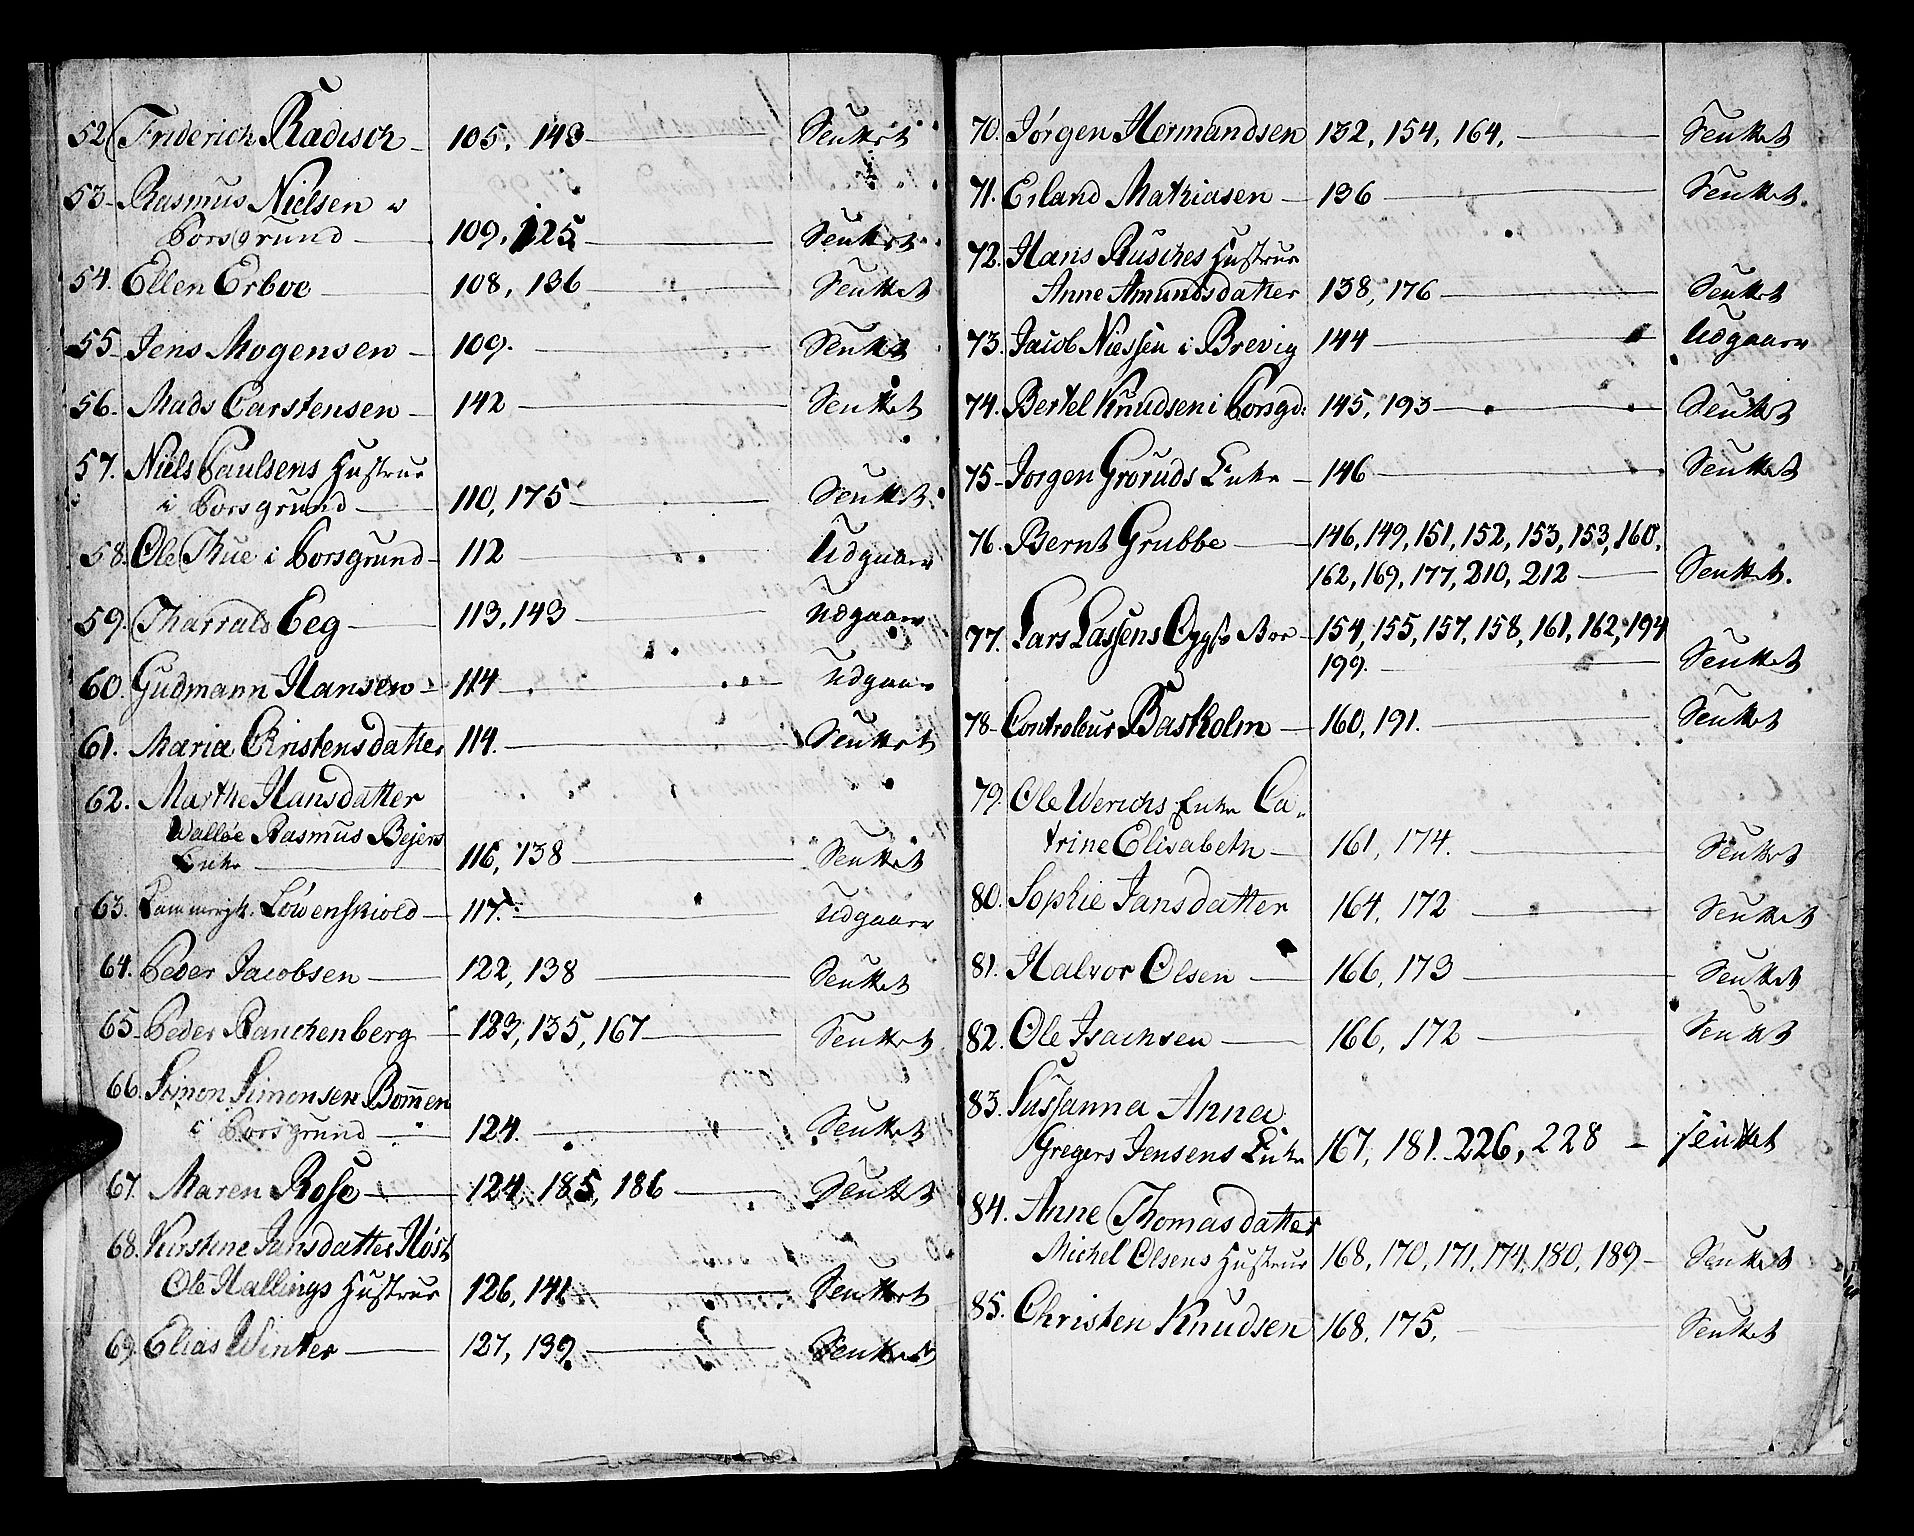 52. Friderich Radisch 105, 143 Sluttet
53. Rasmus Nielsen
Porsgrund 109, 125 Sluttet
54. Ellen Erboe 108, 136 Sluttet
55. Jens Mogensen 109. Sluttet
56. Mads Carstensen 142 Sluttet
57. Niels Paulsens Hustrue
i Porsgrund 110, 175 Sluttet
58. Ole Thue i Porsgrund 112 Udgaaer
59. Tharrald Eeg 113, 143 Udgaaer
60. Gudmann Hansen 114 Udgaaer
61. Maria Christensdatter 114. Sluttet
62. Marthe Hansdatter
Walløe Rasmus Bejers
Enke 116, 138 Sluttet
63. Løwenskiold 117. Udgaaer
64. Peder Jacobsen 122, 138 Sluttet
65. Peder Rauchenberg 123, 135, 167 Sluttet
66. Simon Simonsen Bommen
i Porsgrund 124. Sluttet
67. Maren Rose 124, 185, 186 Sluttet
68. Kirstine Jansdatter Høst
Ole Hallings Hustrue 126, 141 Sluttet
69. Elias Winter 127, 139 Sluttet
70. Jørgen Hermandsen 132, 154, 164, Sluttet
71. Erland Mathiasen 136 Sluttet
72. Hans Rusches Hustrue
Anne Amundsdatter 138, 176 Sluttet
73. Jacob Niessen i Brevig 144 Udgaaer
74. Bertel Knudsen i Porsgd: 145, 193 Sluttet
75. Jørgen Groruds Enke 146 Sluttet
76. Bernt Grubbe 146, 149, 151, 152, 153, 153, 160,
162, 169, 177, 210, 212 Sluttet.
77. Lars Lassens Boe 154, 155, 157, 158, 161, 162, 194
199. Sluttet
78. Controleur Basholm 160, 191. Sluttet
79. Ole Werichs Enke Ca-
trine Elisabeth 161, 174. Sluttet
80. Sophie Jansdatter 164, 172 Sluttet
81. Halvor Olsen 166, 173 Sluttet
82. Ole Isachsen 166, 172 Sluttet
83. Sussanna Anna
Gregers Jensens Enke 167, 181. 226, 228 sluttet
84. Anne Thomasdatter
Michel Olsens Hustrue 168, 170, 171, 174, 180, 189 Sluttet
85. Christen Knudsen 168, 175, Sluttet